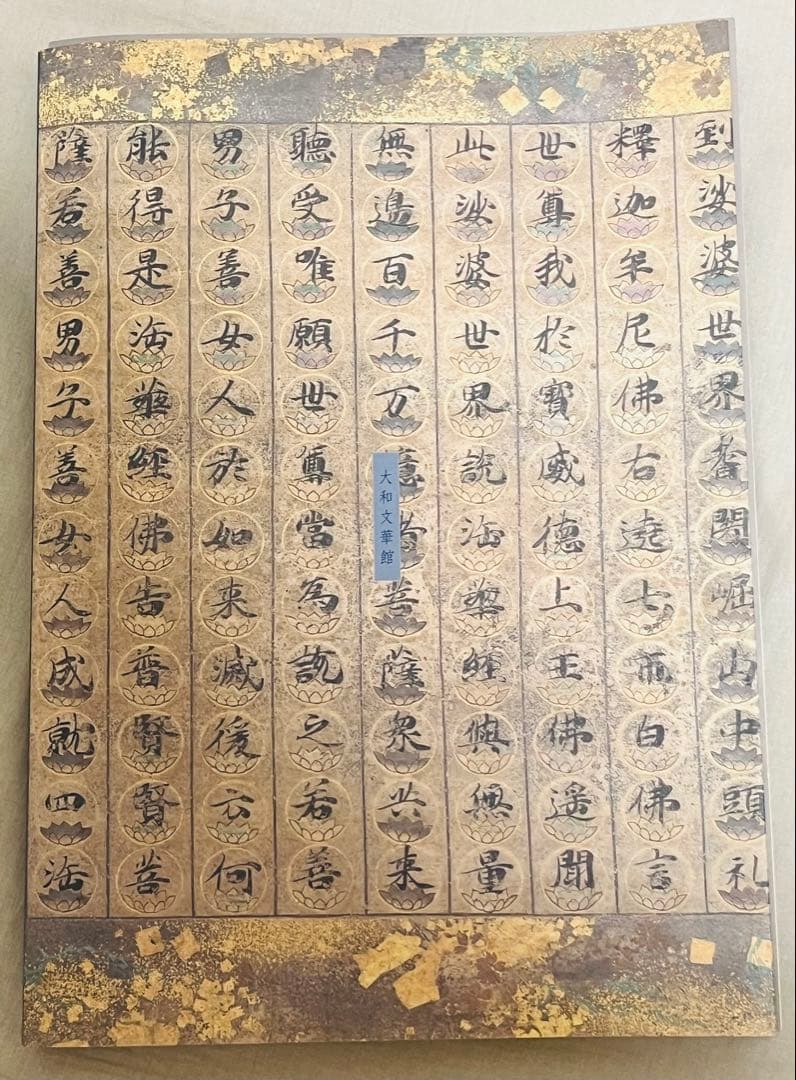 到娑婆世界耆闍崛山中頭礼
釋迦牟尼佛右遶七帀白佛言
世尊我於寶威德上王佛遥聞
此娑婆世界説法華經與無量
無邊百千万菩薩衆共来
聽受唯願世尊當為説之若善
男子善女人於如来滅後云何
能得是法華經佛告普賢賢菩
薩若善男子善女人成就四法
大和文華館